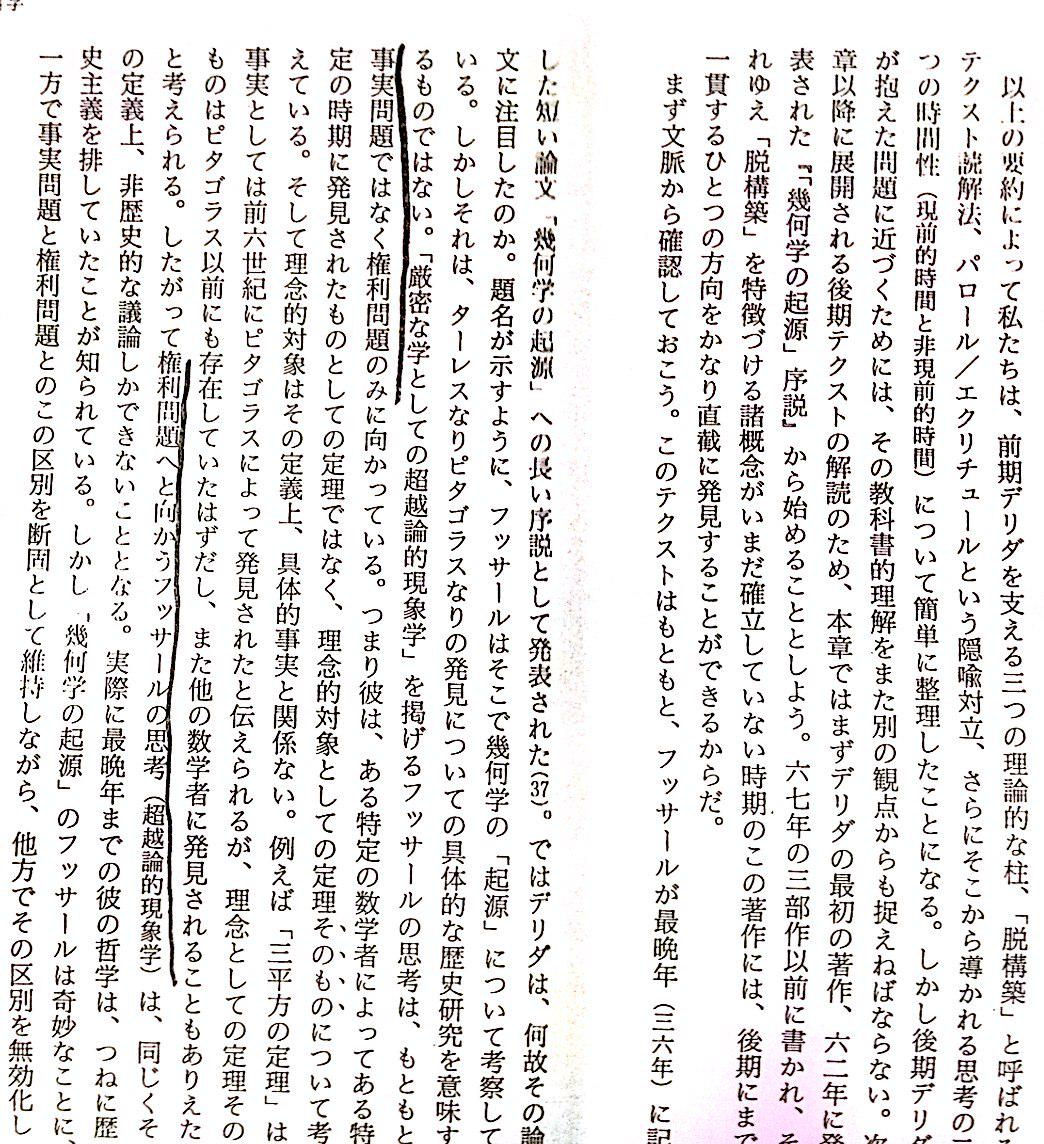 以上の要約によって私たちは、前期デリダを支える三つの理論的な柱、「脱構築」と呼ばれ
テクスト読解法、パロール／エクリチュールという隠喩対立、さらにそこから導かれる思考の
つの時間性（現前的時間と非現前的時間）について簡単に整理したことになる。しかし後期デリダ
が抱えた問題に近づくためには、その教科書的理解をまた別の観点からも捉えねばならない。次
章以降に展開される後期テクストの解読のため、本章ではまずデリダの最初の著作、六二年に発
表された『「幾何学の起源」序説』から始めることとしよう。六七年の三部作以前に書かれ、そ
れゆえ「脱構築」を特徴づける諸概念がいまだ確立していない時期のこの著作には、後期にまで
一貫するひとつの方向をかなり直截に発見することができるからだ。
まず文脈から確認しておこう。このテクストはもともと、フッサールが最晩年（三六年）に記
した短い論文「幾何学の起源」への長い序説として発表された(37)。ではデリダは、何故その論
文に注目したのか。題名が示すように、フッサールはそこで幾何学の「起源」について考察して
いる。しかしそれは、ターレスなりピタゴラスなりの発見についての具体的な歴史研究を意味す
るものではない。「厳密な学としての超越論的現象学」を掲げるフッサールの思考は、もともと
事実問題ではなく権利問題のみに向かっている。つまり彼は、ある特定の数学者によってある特
定の時期に発見されたものとしての定理ではなく、理念的対象としての定理そのものについて考
えている。そして理念的対象はその定義上、具体的事実と関係ない。例えば「三平方の定理」は
事実としては前六世紀にピタゴラスによって発見されたと伝えられるが、理念としての定理その
ものはピタゴラス以前にも存在していたはずだし、また他の数学者に発見されることもありえた
と考えられる。したがって権利問題へと向かうフッサールの思考（超越論的現象学）は、同じくそ
の定義上、非歴史的な議論しかできないこととなる。実際に最晩年までの彼の哲学は、つねに歴
史主義を排していたことが知られている。しかし「幾何学の起源」のフッサールは奇妙なことに、
一方で事実問題と権利問題とのこの区別を断固として維持しながら、他方でその区別を無効化し